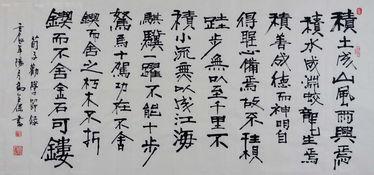 積土成山風雨興焉
積水成淵蛟龍生焉
積善成德而神明自
得聖心備焉故不積
跬步無以至千里不
積小流無以成江海
騏驥一躍不能十步
駑馬十駕功在不舍
鍥而舍之朽木不折
鍥而不舍金石可鏤
荀子勸學節錄
年陽月書